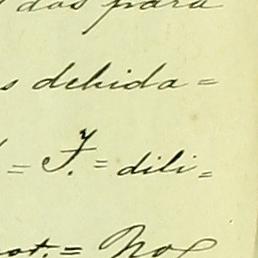 dos para
s debida=
= F. = dili=
not. = Nos